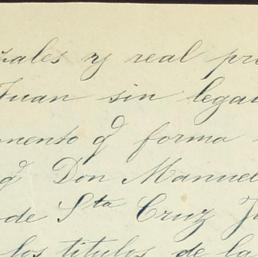 zales y real pr
Juan sin legal
mento q forma
q Don Manuel
de Sta Cruz Ju
los titulos de la